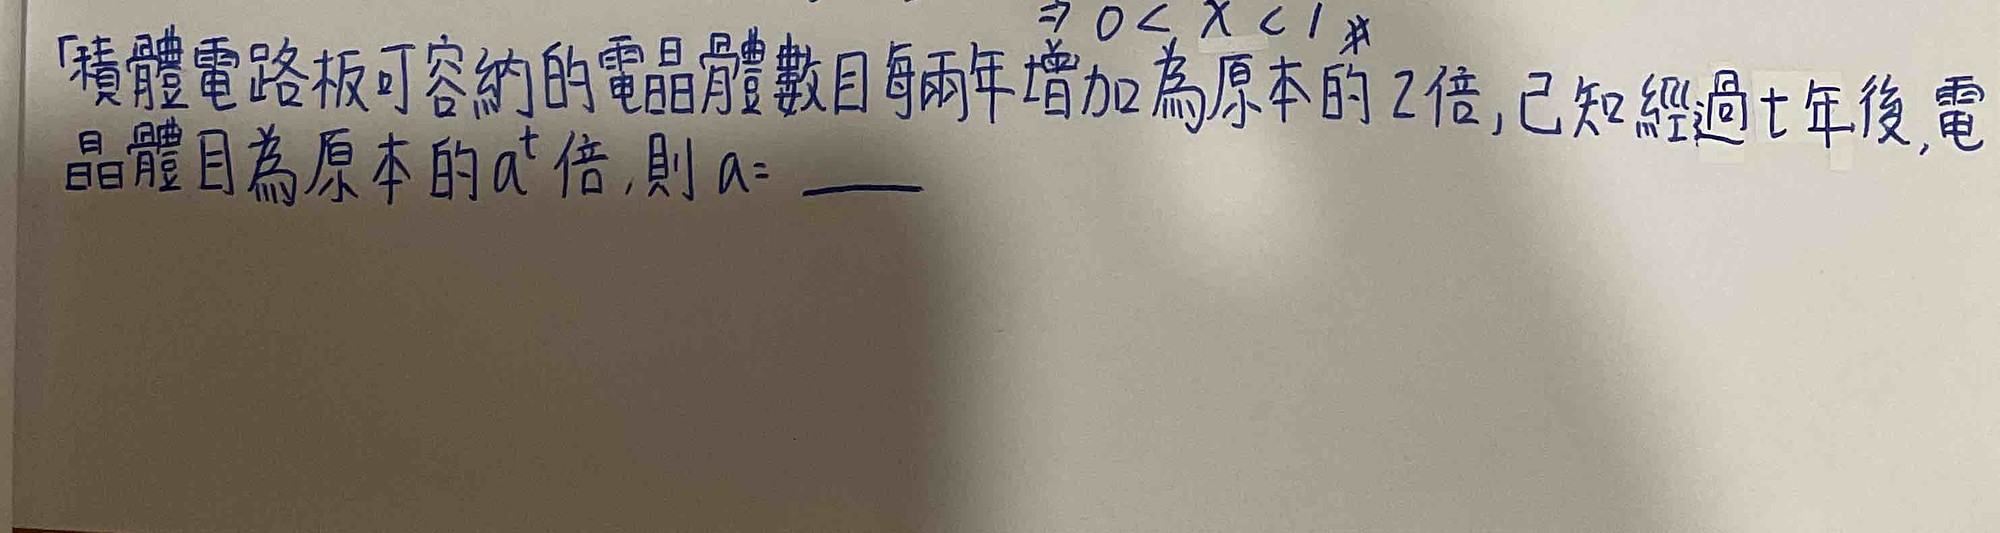 ⇒ 0 < x < 1 ※
「積體電路板可容納的電晶體數目每兩年增加為原本的2倍,已知經過t年後,電
晶體目為原本的aᵗ倍,則 a= ____